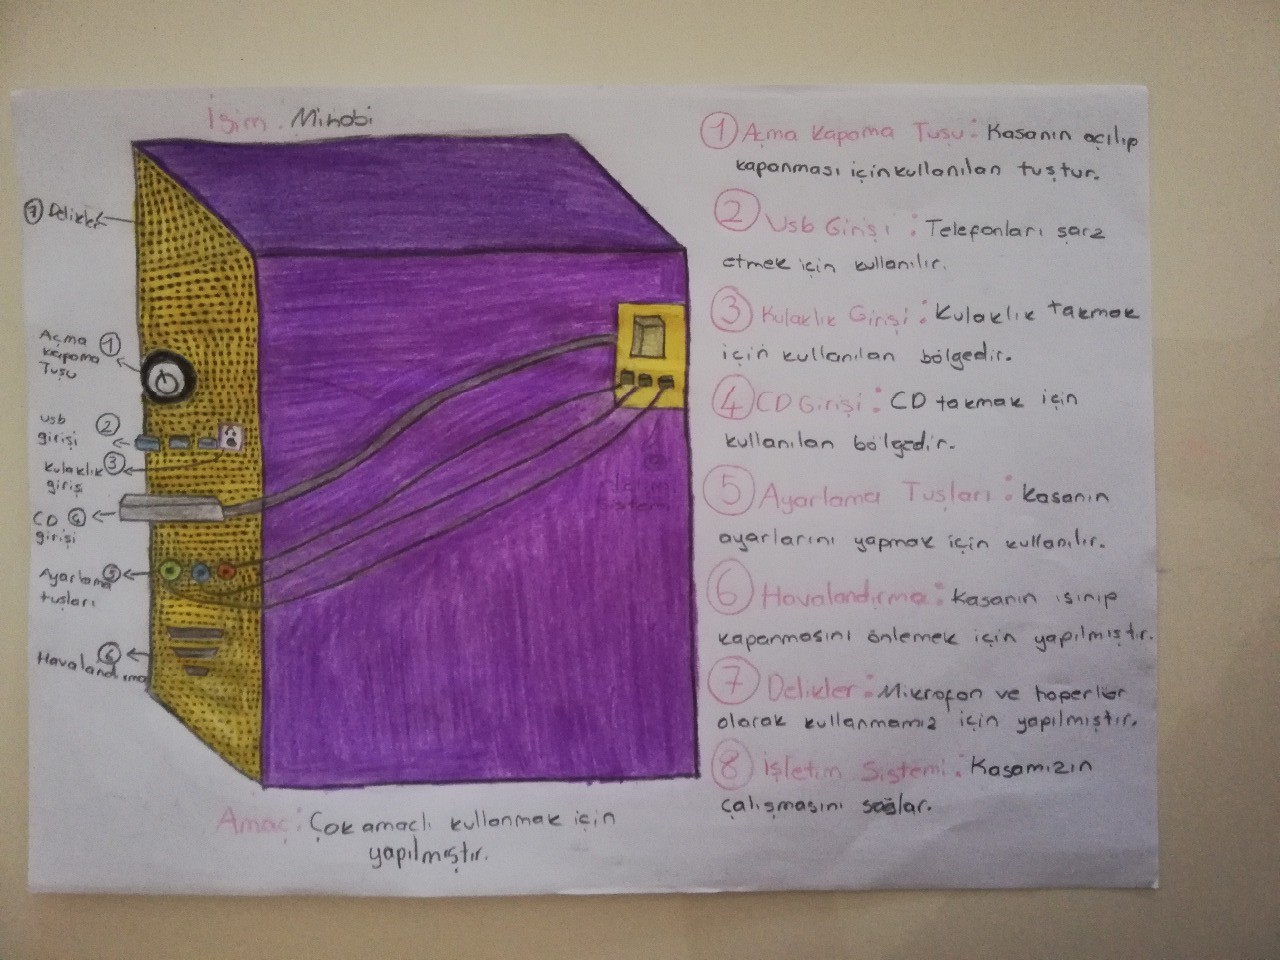 İsim: Minobi
7 Delikler
Açma 1
kapama
Tuşu
usb 2
girişi
Kulaklık 3
girişi
CD 4
girişi
Ayarlama 5
tuşları
6
Havalandırma
8
işletim
sistemi
Amaç: Çok amaçlı kullanmak için
yapılmıştır.
1 Açma Kapama Tuşu: Kasanın açılıp
kapanması için kullanılan tuştur.
2 Usb Girişi: Telefonları şarz
etmek için kullanılır.
3 Kulaklık Girişi: Kulaklık takmak
için kullanılan bölgedir.
4 CD Girişi: CD takmak için
kullanılan bölgedir.
5 Ayarlama Tuşları: Kasanın
ayarlarını yapmak için kullanılır.
6 Havalandırma: Kasanın ısınıp
kapanmasını önlemek için yapılmıştır.
7 Delikler: Mikrofon ve hoperlör
olarak kullanmamız için yapılmıştır.
8 işletim Sistemi: Kasamızın
çalışmasını sağlar.